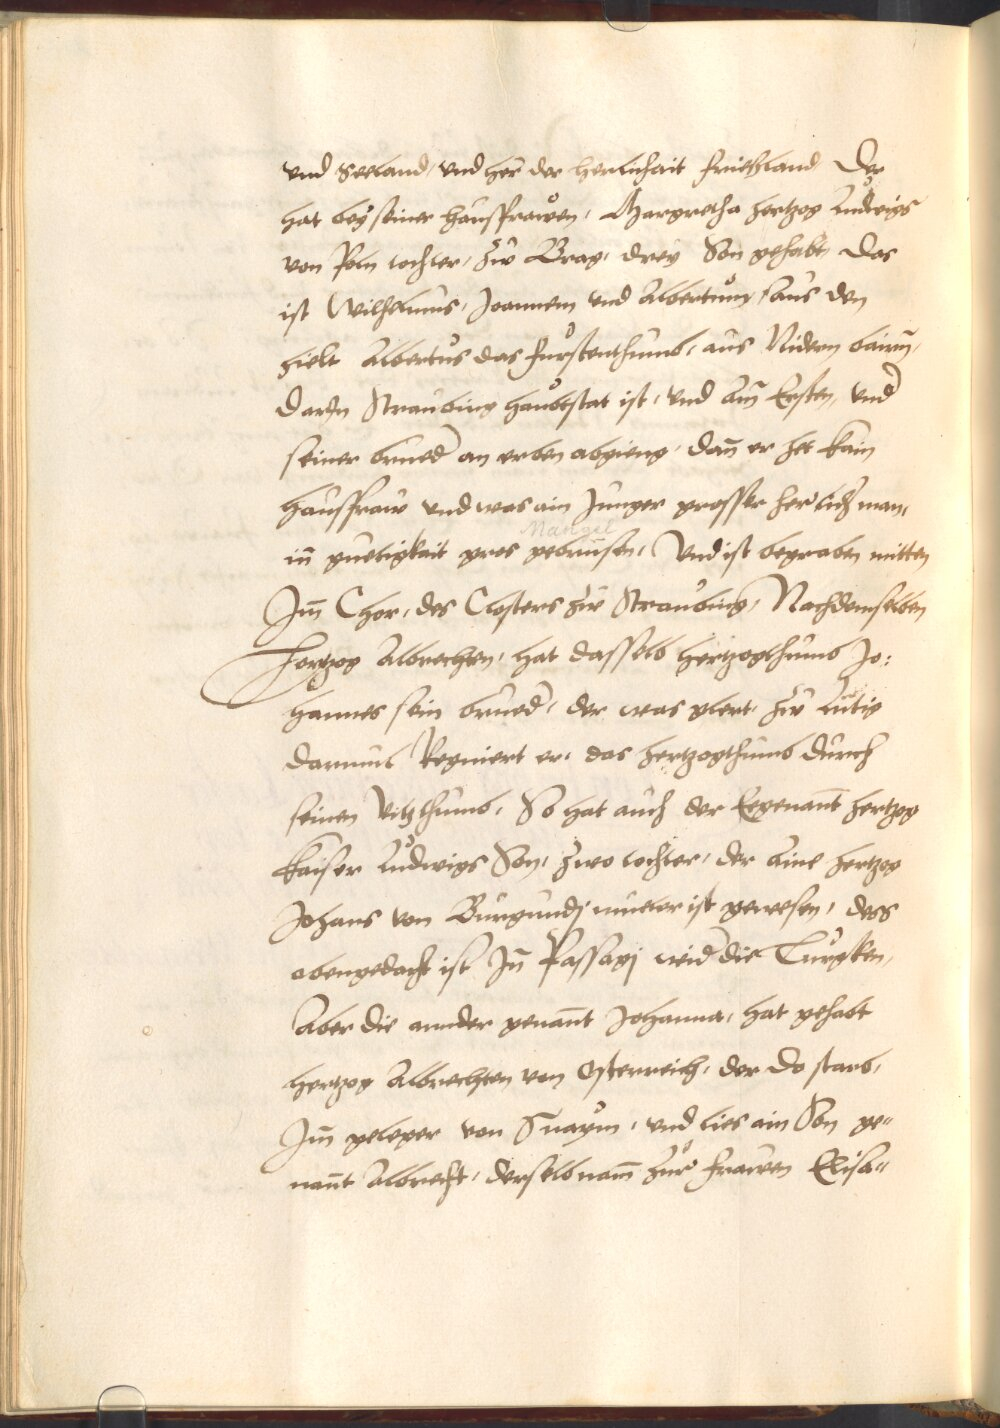 vnd Seeland, vnd her der herlichait frießland Der
hat bey seiner haussfrawen, Margretha hertzog Ludwigs
von Poln tochter, zw Brag, drey Son gehabt, das
ist Wilhelmus, Joannem vnd Albertum, aus den
hielt Albertus das fürstenthumb, aus Nidern bairn,
darIn Straubing haubtstat ist, vnd am Ersten, vnd
seiner brued an erben abgieng, dan er het kain
haussfraw vnd was ain Junger grosser herlich man,
Mangel
in guetigkait gros gebrusen, Vnd ist begraben mitten
Im Chor, des Closters zw Straubing, Nachdemselben
Hertzog Albrechten, hat dasselb hertzogthumb Jo:
hannes sein brued, der was glert, zw Lutig
darumb Regniert er, das hertzogthumb durch
seinen Vitzthumb, So hat auch der Egenant hertzog
kaiser Ludwigs Son, zwo tochter, der Aine hertzog
Johans von Burgundj mueter ist gewesen, dess
obengedacht ist In Passagj wid die Turgken,
Aber die annder genant Johanna, hat gehabt
hertzog Albrechten von Osterreich, der do starb,
Im geleger von Snaym, vnd lies ain Son ge=
nant Albrecht, derselb nam zur frawen Elisa=